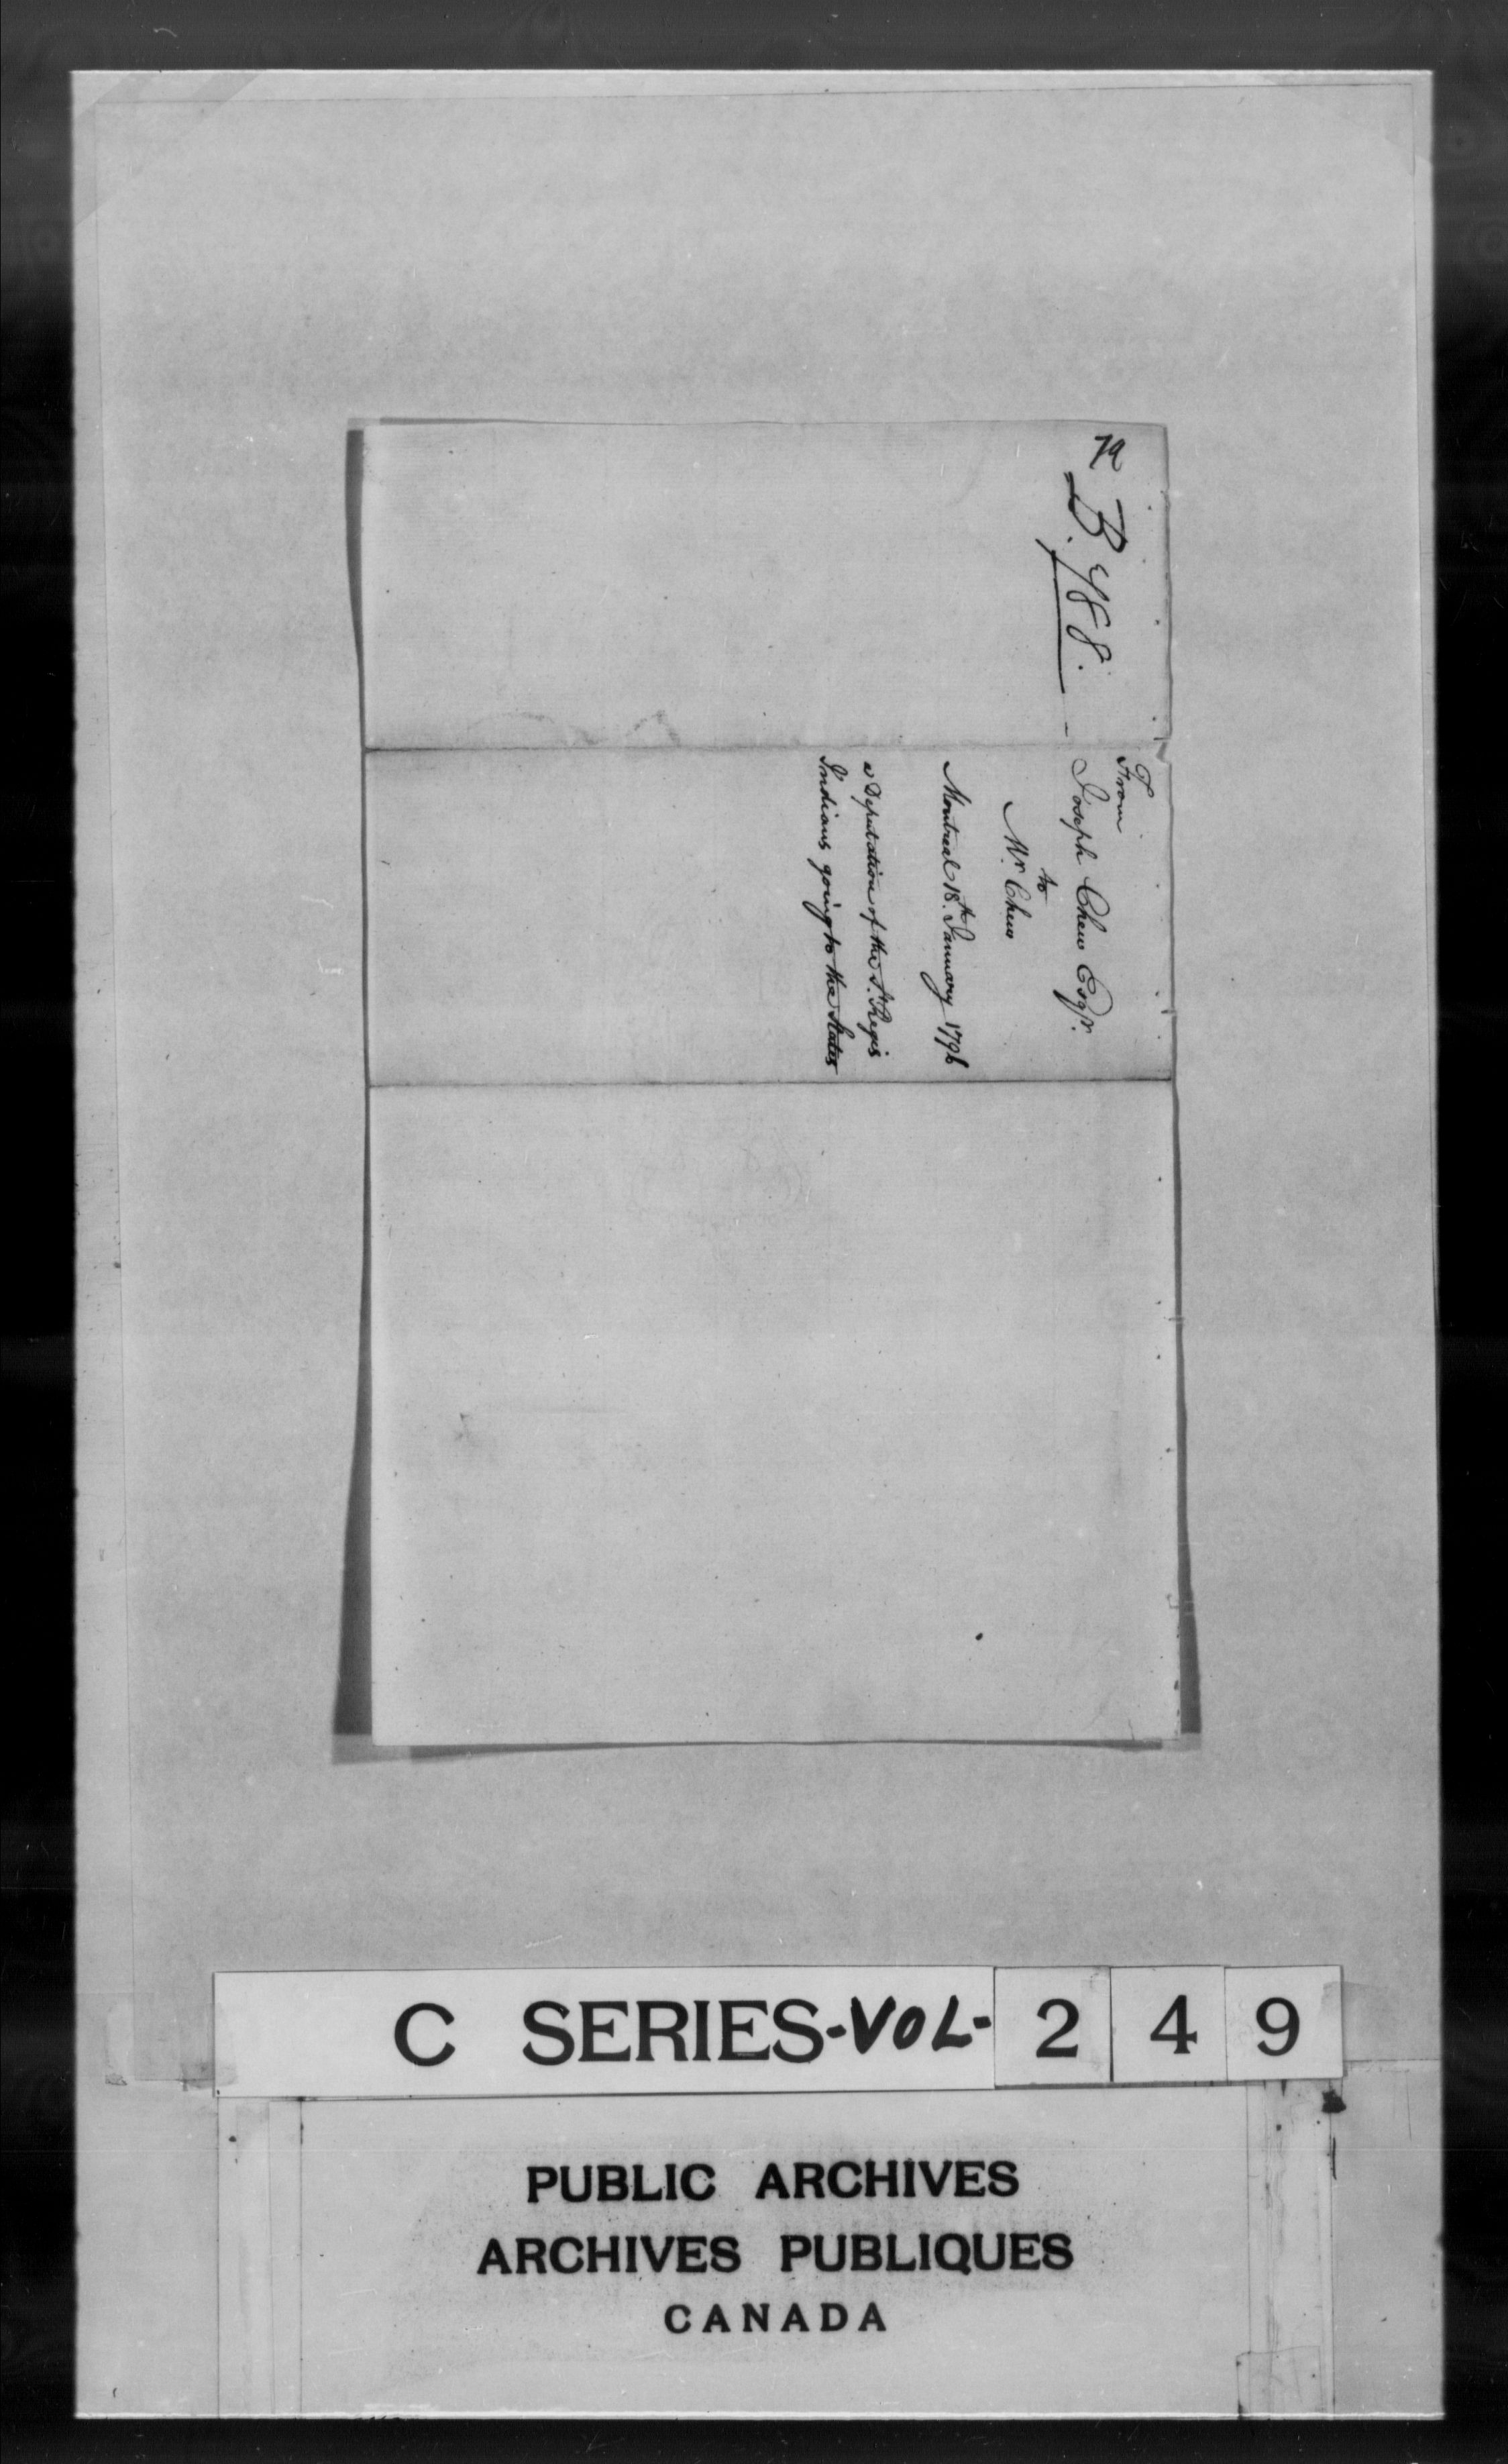 B. 488.
From
Joseph Chew Esqr.
to
Mr. Chew
Montreal 18th January 1796
a Deputation of the St. Regis
Indians going to the States
C SERIES-VOL-249
PUBLIC ARCHIVES
ARCHIVES PUBLIQUES
CANADA